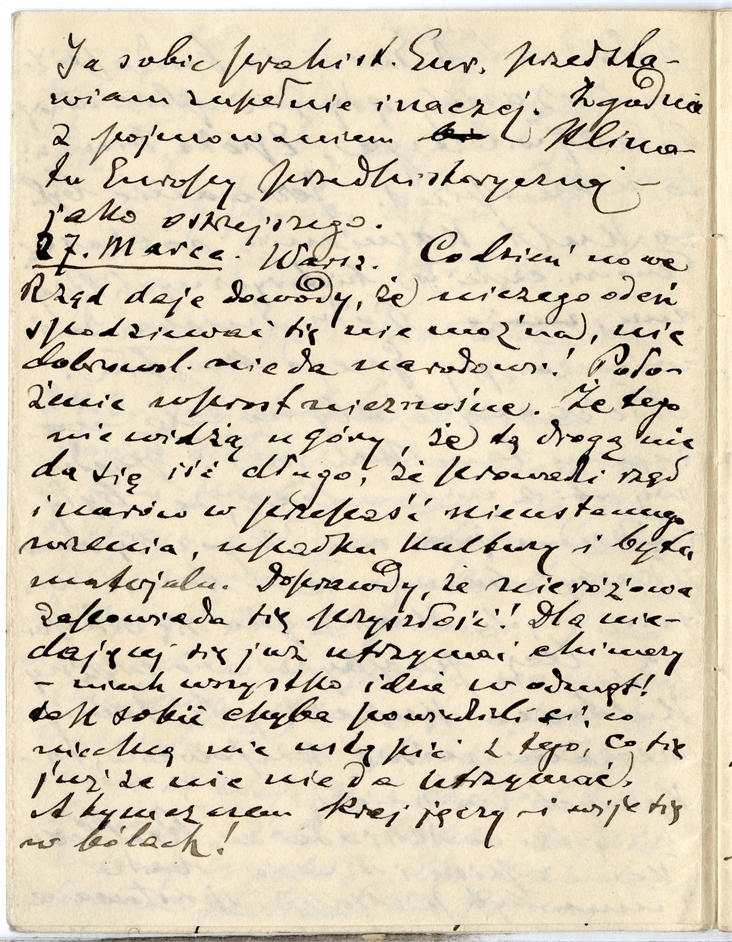 Ja sobie prahist. Eur. przedsta-
wiam zupełnie inaczej. Zgodnie
z pojmowaniem Klima-
tu Europy przedhistorycznej -
jako ostrejszego.
27. Marca. Warsz. Codzień nowe
Rząd daje dowody, że niczego odeń
spodziewać się nie można, nic
dobrowol. nie da narodowi! Poło-
żenie wprost nieznośne. Że tego
nie widzą u góry, że tą drogą nie
da się iść długo, że prowadzi rząd
i naród w przepaść nieustannego
wrzenia, upadku kultury i bytu
materjaln. Doprawdy, że nieróżowa
zapowiada się przyszłość! Dla nie-
dającej się już utrzymać chimery
- niech wszystko idzie w odmęt!
tak sobie chyba powiedzieli ci, co
niechcą nic ustąpić z tego, co się
już za nic nie da utrzymać.
A tymczasem kraj jęczy i wije się
w bólach!